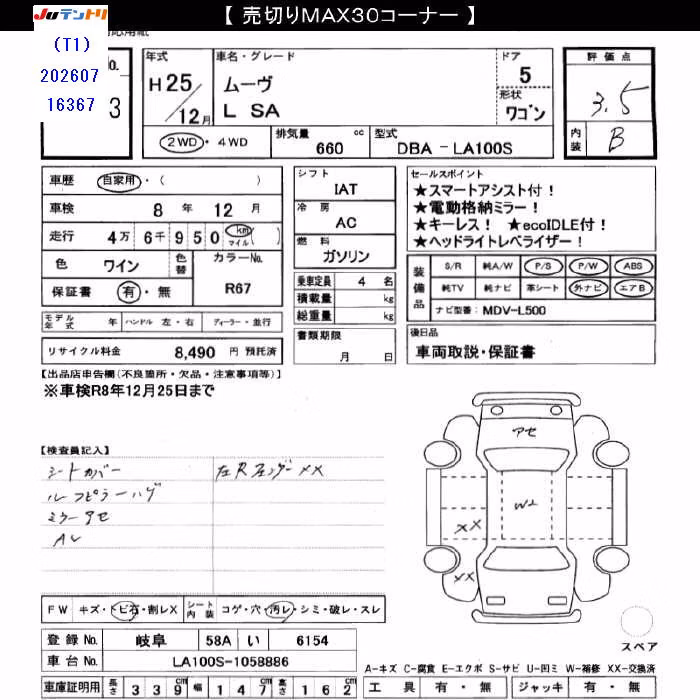 【 売切りMAX30コーナー 】
JUテントリ
(T1)
202607
16367
No.
3
年式
H 25/12月
車名・グレード
ムーヴ
L SA
ドア
5
形状
ワゴン
評価点
3.5
内装
B
2WD・4WD
排気量 660 cc
型式 DBA - LA100S
車歴 自家用・( )
車検 8 年 12 月
走行 4万 6千 950 km マイル ( )
色 ワイン 色替
カラーNo. R67
保証書 有・無
モデル年式 年 ハンドル 左・右 ディーラー・並行
リサイクル料金 8,490 円 預託済
シフト
IAT
冷房
AC
燃料
ガソリン
乗車定員 4 名
積載量 kg
総重量 kg
書類期限
月 日
セールスポイント
★スマートアシスト付!
★電動格納ミラー!
★キーレス! ★ecoIDLE付!
★ヘッドライトレベライザー!
装備品
S/R 純A/W P/S P/W ABS
純TV 純ナビ 革シート 外ナビ エアB
ナビ型番: MDV-L500
後日品
車両取説・保証書
【出品店申告欄(不良箇所・欠品・注意事項等)】
※車検R8年12月25日まで
【検査員記入】
シートカバー 左Rフェンダー XX
ルーフピラーハゲ
ミラーアセ
AL
アセ
W2
XX
XX
FW キズ・トビ石・割レX シート内装 コゲ・穴・汚レ・シミ・破レ・スレ
登録No. 岐阜 58A い 6154
車台No. LA100S-1058886
車庫証明用 長さ 339cm 幅 147cm 高さ 162cm
スペア
A-キズ C-腐食 E-エクボ S-サビ U-凹ミ W-補修 XX-交換済
工具 有・無 ジャッキ 有・無